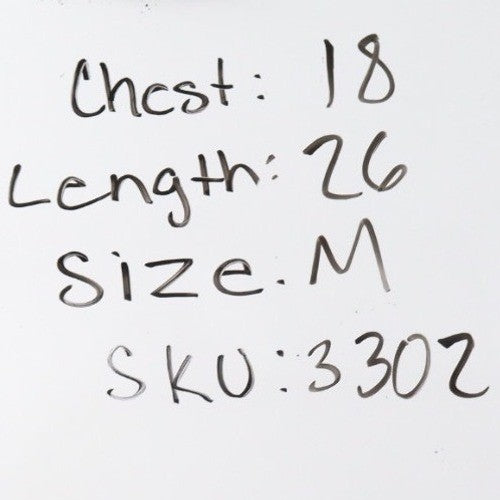 Chest: 18
Length: 26
Size. M
SKU: 3302